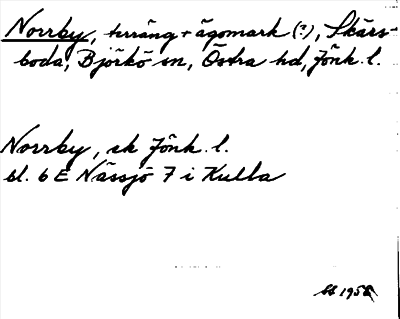 Norrby, terräng + ägomark (?), Skärs-
boda, Björkö sn, Östra hd, Jönk. l.
Norrby, ek Jönk. l.
bl. 6 E Nässjö 7 i Kulla